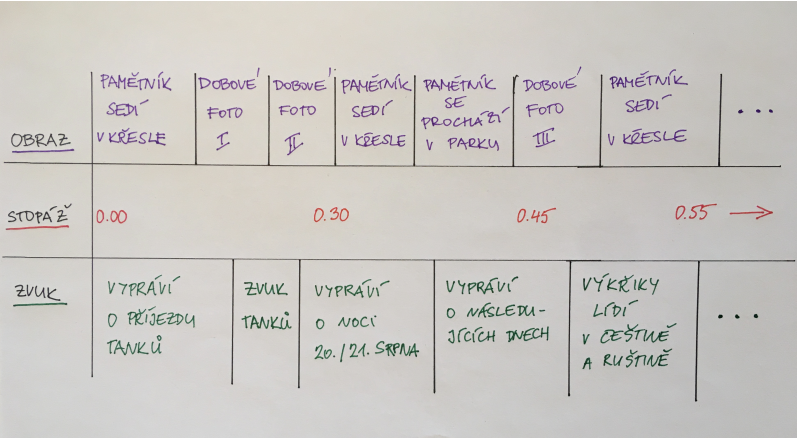 OBRAZ
PAMĚTNÍK
SEDÍ
V KŘESLE
DOBOVÉ
FOTO
I
DOBOVÉ
FOTO
II
PAMĚTNÍK
SEDÍ
V KŘESLE
PAMĚTNÍK
SE
PROCHÁZÍ
V PARKU
DOBOVÉ
FOTO
III
PAMĚTNÍK
SEDÍ
V KŘESLE
...
STOPÁŽ
0.00
0.30
0.45
0.55 →
ZVUK
VYPRÁVÍ
O PŘÍJEZDU
TANKŮ
ZVUK
TANKŮ
VYPRÁVÍ
O NOCI
20./21. SRPNA
VYPRÁVÍ
O NÁSLEDU-
JÍCÍCH DNECH
VÝKŘIKY
LÍDÍ
V ČEŠTINĚ
A RUŠTINĚ
...